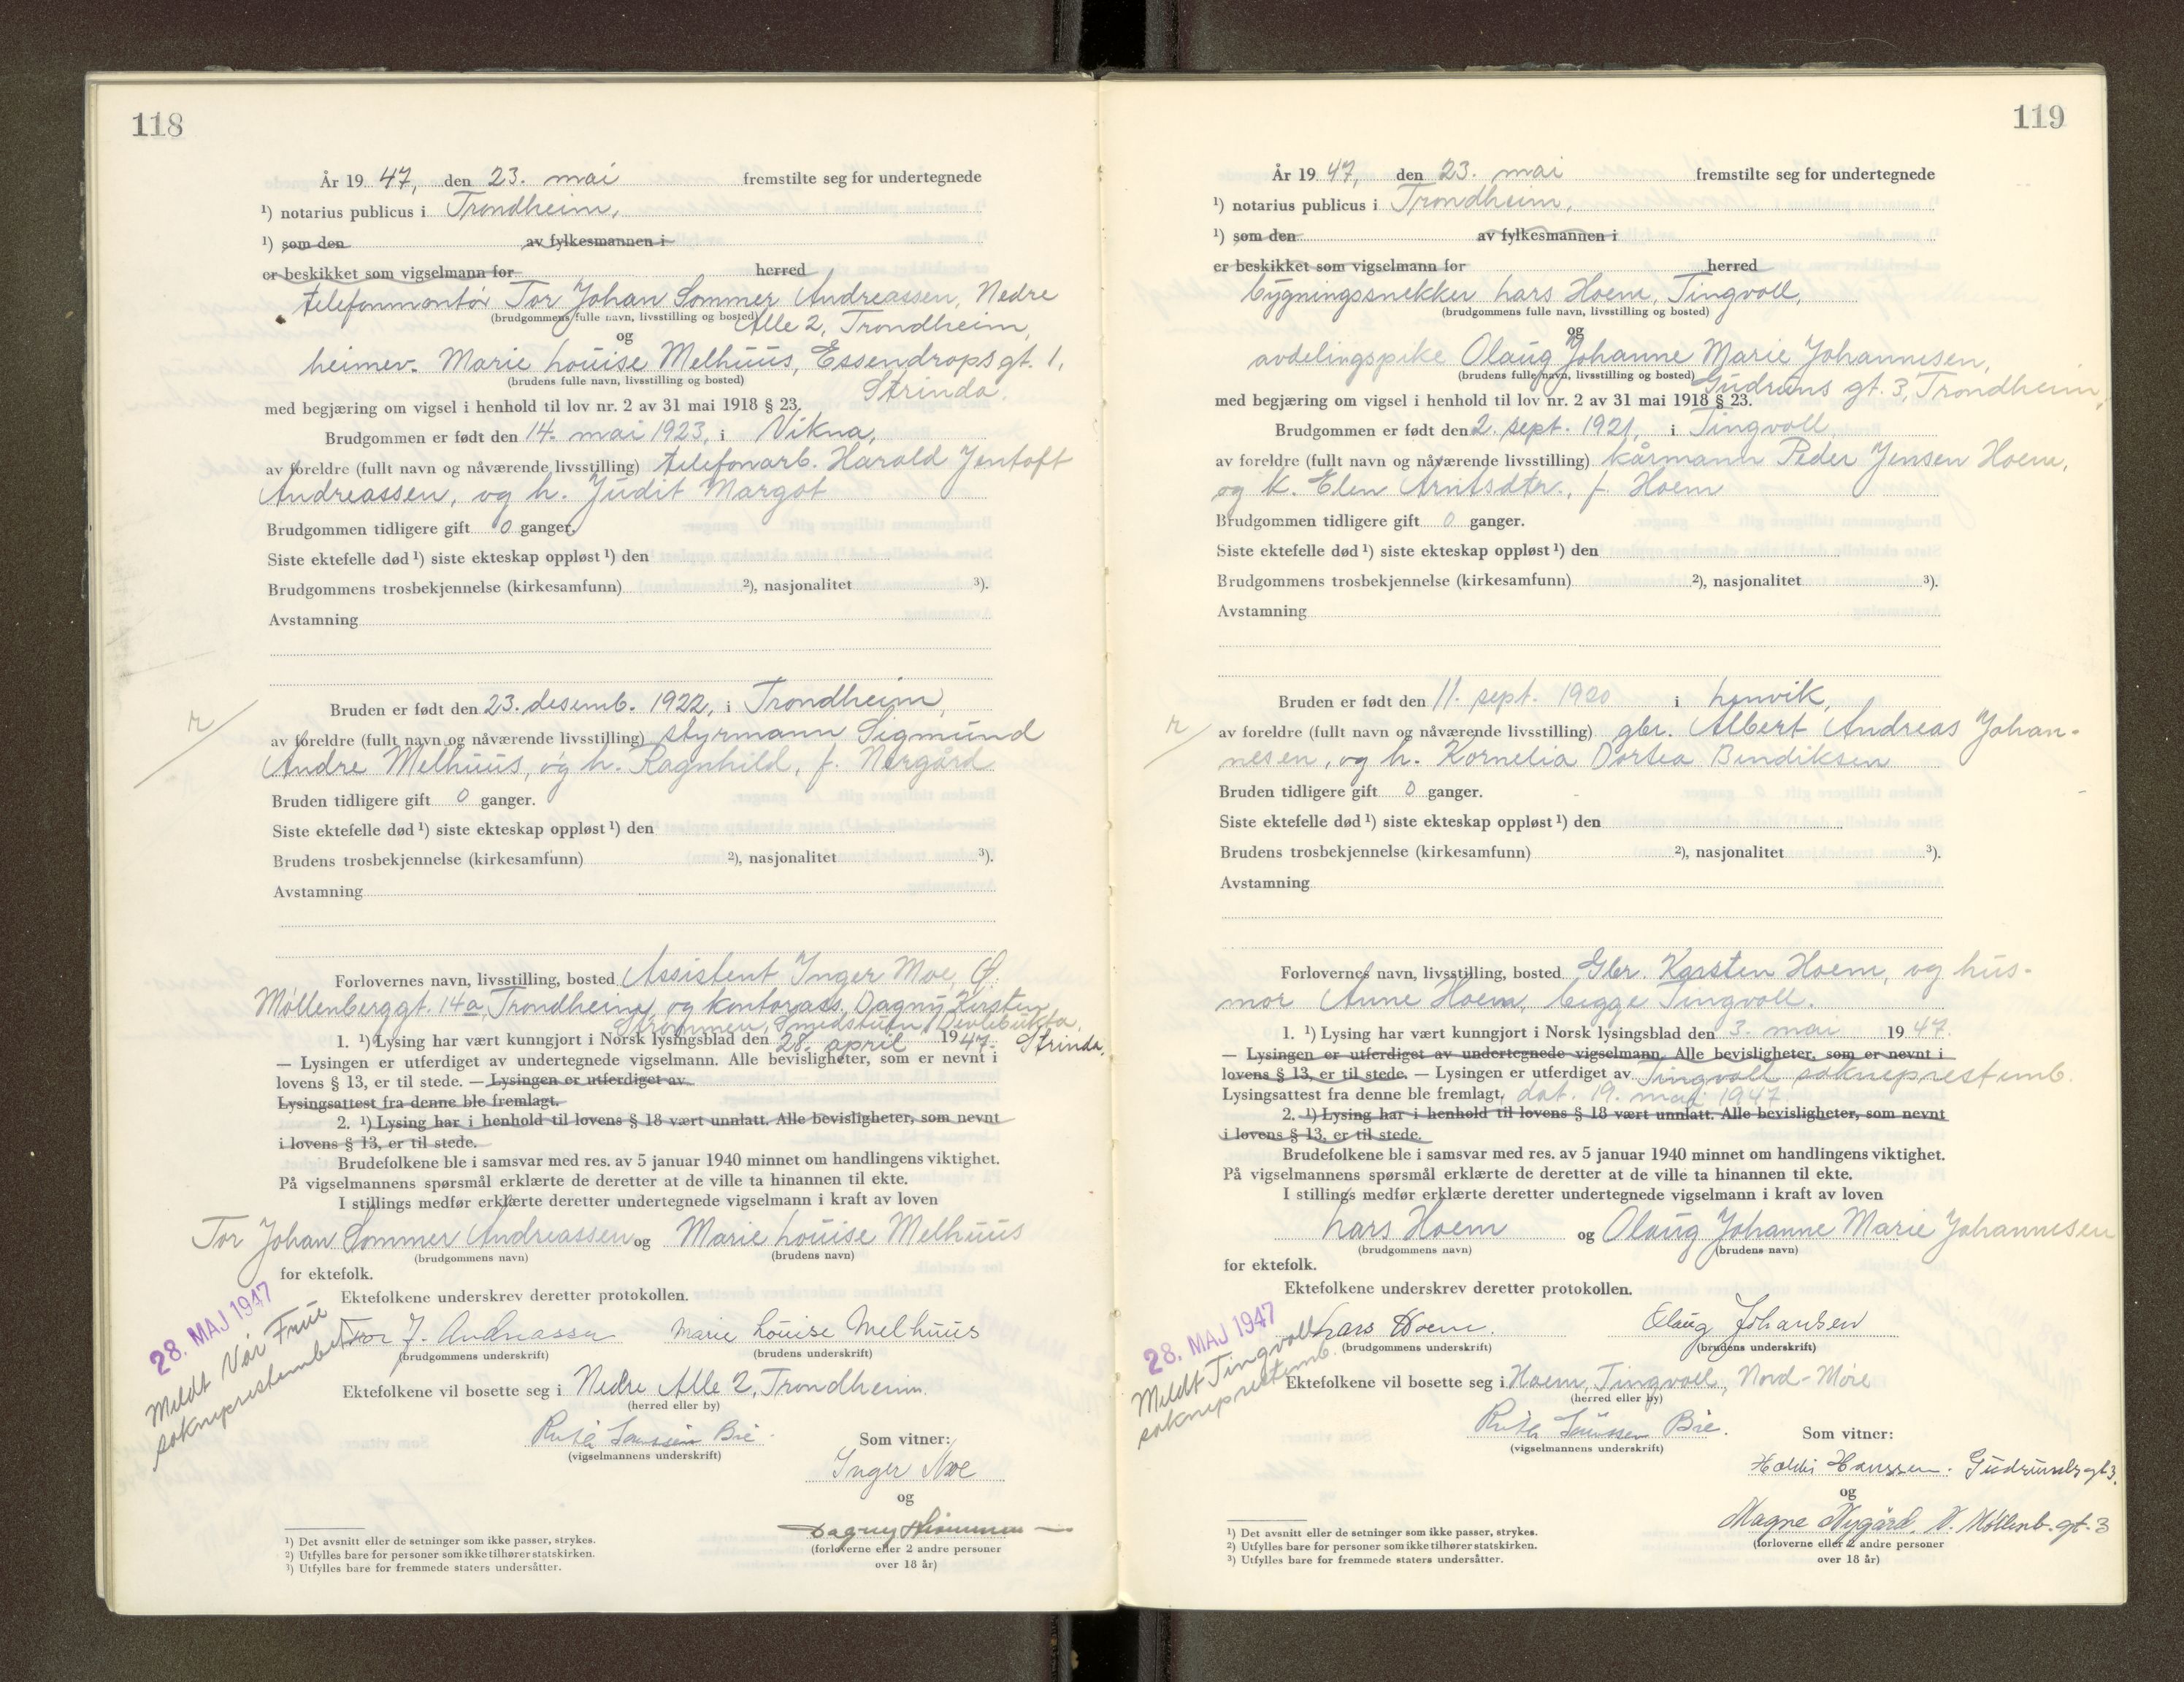 118
År 19 47, den 23. mai fremstilte seg for undertegnede
¹) notarius publicus i Trondheim,
¹) som den av fylkesmannen i
er beskikket som vigselmann for herred
telefonmontør Tor Johan Sommer Andreassen, Nedre
(brudgommens fulle navn, livsstilling og bosted) Alle 2, Trondheim,
og
heimev. Marie Louise Melhuus, Essendropsgt. 1,
(brudens fulle navn, livsstilling og bosted) Strinda.
med begjæring om vigsel i henhold til lov nr. 2 av 31 mai 1918 § 23.
Brudgommen er født den 14. mai 1923, i Vikna,
av foreldre (fullt navn og nåværende livsstilling) telefonarb. Harald Jentoft
Andreassen, og h. Judit Margot
Brudgommen tidligere gift 0 ganger.
Siste ektefelle død ¹) siste ekteskap oppløst ¹) den
Brudgommens trosbekjennelse (kirkesamfunn) ²), nasjonalitet ³).
Avstamning
Bruden er født den 23. desemb. 1922, i Trondheim,
av foreldre (fullt navn og nåværende livsstilling) styrmann Sigmund
Andre Melhuus, og h. Ragnhild, f. Nergård
Bruden tidligere gift 0 ganger.
Siste ektefelle død ¹) siste ekteskap oppløst ¹) den
Brudens trosbekjennelse (kirkesamfunn) ²), nasjonalitet ³).
Avstamning
Forlovernes navn, livsstilling, bosted Assistent Inger Moe, Ø.
Møllenberggt. 14a, Trondheim, og kontorass. Dagny Kirsten
Strømmen, Smedstuen, Devlebukta,
1. ¹) Lysing har vært kunngjort i Norsk lysingsblad den 28. april 1947. Strinda.
— Lysingen er utferdiget av undertegnede vigselmann. Alle bevisligheter, som er nevnt i
lovens § 13, er til stede. — Lysingen er utferdiget av
Lysingsattest fra denne ble fremlagt.
2. ¹) Lysing har i henhold til lovens § 18 vært unnlatt. Alle bevisligheter, som nevnt
i lovens § 13, er til stede.
Brudefolkene ble i samsvar med res. av 5 januar 1940 minnet om handlingens viktighet.
På vigselmannens spørsmål erklærte de deretter at de ville ta hinannen til ekte.
I stillings medfør erklærte deretter undertegnede vigselmann i kraft av loven
Tor Johan Sommer Andreassen og Marie Louise Melhuus
(brudgommens navn) (brudens navn)
for ektefolk.
Ektefolkene underskrev deretter protokollen.
28. MAJ 1947
Meldt Vår Frue
sokneprestembet
Tor J. Andreassen Marie Louise Melhuus
(brudgommens underskrift) (brudens underskrift)
Ektefolkene vil bosette seg i Nedre Alle 2, Trondheim.
(herred eller by)
Ruth Bie.
(vigselmannens underskrift)
Som vitner:
Inger Moe
og
Dagny Strømmen
(forloverne eller 2 andre personer
over 18 år)
¹) Det avsnitt eller de setninger som ikke passer, strykes.
²) Utfylles bare for personer som ikke tilhører statskirken.
³) Utfylles bare for fremmede staters undersåtter.
119
År 19 47, den 23. mai fremstilte seg for undertegnede
¹) notarius publicus i Trondheim,
¹) som den av fylkesmannen i
er beskikket som vigselmann for herred
bygningssnekker Lars Hoem, Tingvoll,
(brudgommens fulle navn, livsstilling og bosted)
og
avdelingspike Olaug Johanne Marie Johannesen,
(brudens fulle navn, livsstilling og bosted) Gudruns gt. 3, Trondheim,
med begjæring om vigsel i henhold til lov nr. 2 av 31 mai 1918 § 23.
Brudgommen er født den 2. sept. 1921, i Tingvoll,
av foreldre (fullt navn og nåværende livsstilling) kårmann Peder Jensen Hoem,
og k. Elen Arntsdtr., f. Hoem
Brudgommen tidligere gift 0 ganger.
Siste ektefelle død ¹) siste ekteskap oppløst ¹) den
Brudgommens trosbekjennelse (kirkesamfunn) ²), nasjonalitet ³).
Avstamning
Bruden er født den 11. sept. 1920 i Lenvik,
av foreldre (fullt navn og nåværende livsstilling) gbr. Albert Andreas Johan-
nesen, og h. Kornelia Dortea Bendiksen
Bruden tidligere gift 0 ganger.
Siste ektefelle død ¹) siste ekteskap oppløst ¹) den
Brudens trosbekjennelse (kirkesamfunn) ²), nasjonalitet ³).
Avstamning
Forlovernes navn, livsstilling, bosted Gbr. Karsten Hoem, og hus-
mor Anne Hoem, begge Tingvoll.
1. ¹) Lysing har vært kunngjort i Norsk lysingsblad den 3. mai 19 47.
— Lysingen er utferdiget av undertegnede vigselmann. Alle bevisligheter, som er nevnt i
lovens § 13, er til stede. — Lysingen er utferdiget av Tingvoll sokneprestemb.
Lysingsattest fra denne ble fremlagt, dat. 19. mai 1947.
2. ¹) Lysing har i henhold til lovens § 18 vært unnlatt. Alle bevisligheter, som nevnt
i lovens § 13, er til stede.
Brudefolkene ble i samsvar med res. av 5 januar 1940 minnet om handlingens viktighet.
På vigselmannens spørsmål erklærte de deretter at de ville ta hinannen til ekte.
I stillings medfør erklærte deretter undertegnede vigselmann i kraft av loven
Lars Hoem og Olaug Johanne Marie Johannesen
(brudgommens navn) (brudens navn)
for ektefolk.
Ektefolkene underskrev deretter protokollen.
28. MAJ 1947
Meldt Tingvoll
sokneprestemb.
Lars Hoem. Olaug Johansen
(brudgommens underskrift) (brudens underskrift)
Ektefolkene vil bosette seg i Hoem, Tingvoll, Nord-Møre
(herred eller by)
Ruth Bie.
(vigselmannens underskrift)
Som vitner:
Hanssen. Gudrunsgt 3.
og
Magne Nygård, N. Møllenb. gt. 3
(forloverne eller 2 andre personer
over 18 år)
¹) Det avsnitt eller de setninger som ikke passer, strykes.
²) Utfylles bare for personer som ikke tilhører statskirken.
³) Utfylles bare for fremmede staters undersåtter.